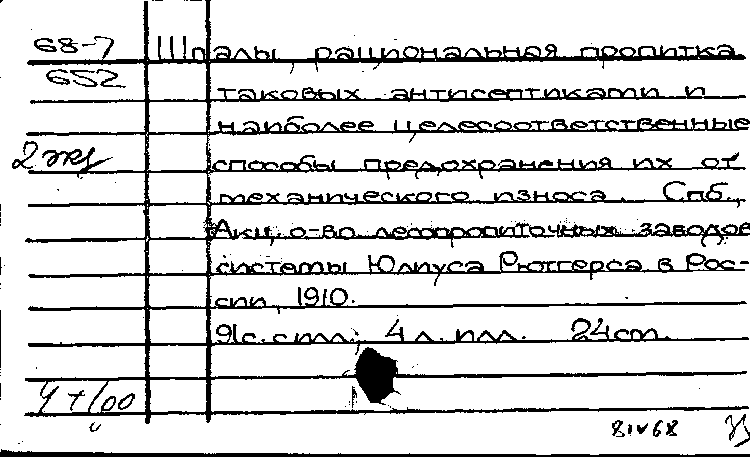 68-7 Шпалы, рациональная пропитка
652 таковых антисептиками и
наиболее целесоответственные
2 экз способы предохранения их от
механического износа. Спб.,
Акц. о-во лесопропиточных заводов
системы Юлиуса Рютгерса в Рос-
сии, 1910.
91с. с илл., 4 л. илл. 24см.
81v68